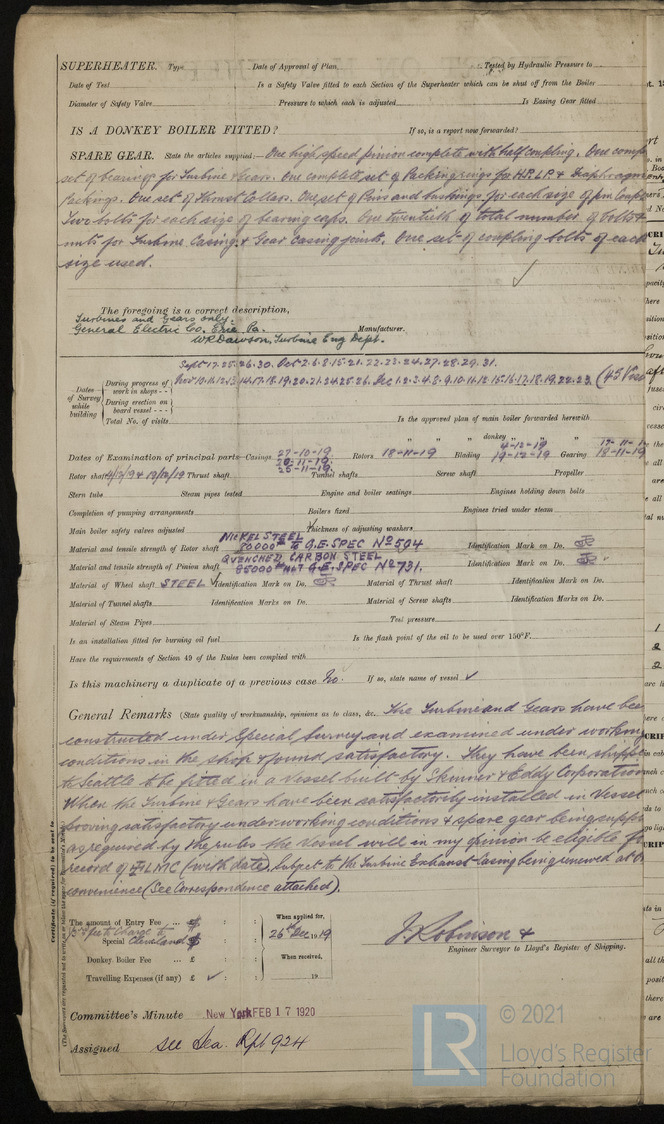 SUPERHEATER. Type Date of Approval of Plan Tested by Hydraulic Pressure to
Date of Test Is a Safety Valve fitted to each Section of the Superheater which can be shut off from the Boiler
Diameter of Safety Valve Pressure to which each is adjusted Is Easing Gear fitted
IS A DONKEY BOILER FITTED? If so, is a report now forwarded?
SPARE GEAR. State the articles supplied:— One high speed pinion complete with half coupling. One comp
set of bearings for Turbine & Gears. One complete set of Packing rings for H.P. L.P. & Diaphragm
Packings. One set of Thrust Collars. One set of Pins and bushings for each size of pin Coup
Two bolts for each size of bearing caps. One twentieth of total number of bolts &
nuts for Turbine Casing & Gear Casing joints. One set of coupling bolts of each
size used.
The foregoing is a correct description,
Turbines and Gears only.
General Electric Co. Erie Pa. Manufacturer.
W.R. Dawson, Turbine Eng Dept.
Dates of Survey while building
During progress of work in shops -- Sept 17.25.26.30. Oct 2.6.8.15.21.22.23.24.27.28.29.31.
Nov 10.11.12.13.14.17.18.19.20.21.24.25.26. Dec 1.2.3.4.8.9.10.11.12.15.16.17.18.19.22.23. (45 Vis
During erection on board vessel ---
Total No. of visits Is the approved plan of main boiler forwarded herewith
" " donkey " " "
Dates of Examination of principal parts—Casings 27-10-19 20-11-19 25-11-19 Rotors 18-11-19 Blading 4-12-19 19-12-19 Gearing 17-11-1 18-11-19
Rotor shaft Thrust shaft Tunnel shafts Screw shaft Propeller
Stern tube Steam pipes tested Engine and boiler seatings Engines holding down bolts
Completion of pumping arrangements Boilers fixed Engines tried under steam
Main boiler safety valves adjusted Thickness of adjusting washers
Material and tensile strength of Rotor shaft NICKEL STEEL 80000# to G.E. SPEC No 504 Identification Mark on Do.
Material and tensile strength of Pinion shaft QUENCHED CARBON STEEL 85000# G.E. SPEC No 731. Identification Mark on Do.
Material of Wheel shaft STEEL Identification Mark on Do. Material of Thrust shaft Identification Mark on Do.
Material of Tunnel shafts Identification Marks on Do. Material of Screw shafts Identification Marks on Do.
Material of Steam Pipes Test pressure
Is an installation fitted for burning oil fuel Is the flash point of the oil to be used over 150°F.
Have the requirements of Section 49 of the Rules been complied with
Is this machinery a duplicate of a previous case No. If so, state name of vessel ✓
General Remarks (State quality of workmanship, opinions as to class, &c. The Turbine and Gears have bee
constructed under Special Survey and examined under working
conditions in the shop & found satisfactory. They have been shipp
to Seattle to be fitted in a Vessel built by Skinner & Eddy Corporation
When the Turbine & Gears have been satisfactorily installed in Vessel
proving satisfactory under working conditions & spare gear being supp
as required by the rules the Vessel will in my opinion be eligible f
record of LMC (with date), subject to the Turbine Exhaust Casing being renewed at
convenience (See Correspondence attached).
Certificate (if required) to be sent to
The amount of Entry Fee ... $ : :
Special Cleveland $ : :
Donkey Boiler Fee ... £ : :
Travelling Expenses (if any) £ ✓ : :
When applied for,
26th Dec 1919
When received,
19
J. Robinson
Engineer Surveyor to Lloyd's Register of Shipping.
Committee's Minute New York FEB 17 1920
Assigned See Sea. Rpt 924
LR © 2021
Lloyd's Register
Foundation